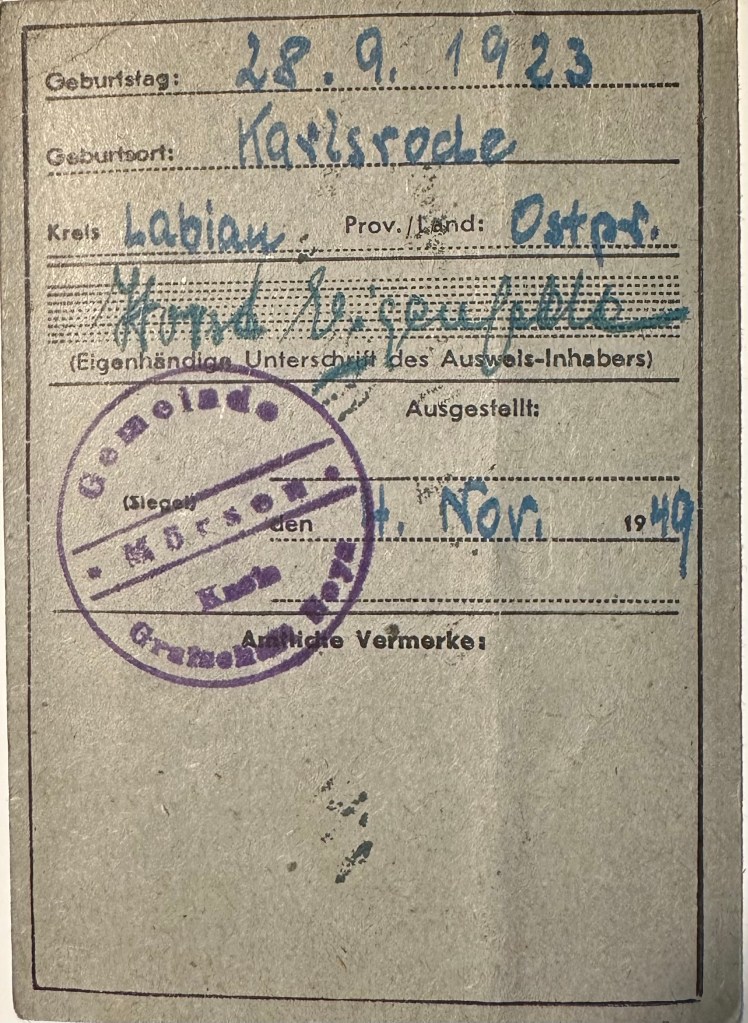 Geburtstag: 28.9.1923
Geburtsort: Karlsrode
Kreis Labiau Prov./Land: Ostpr.
Horst
(Eigenhändige Unterschrift des Ausweis-Inhabers)
Ausgestellt:
(Siegel)
den 4. Nov. 1949
Amtliche Vermerke:
Gemeinde
Mörsen
Kreis
Grafschaft Hoya